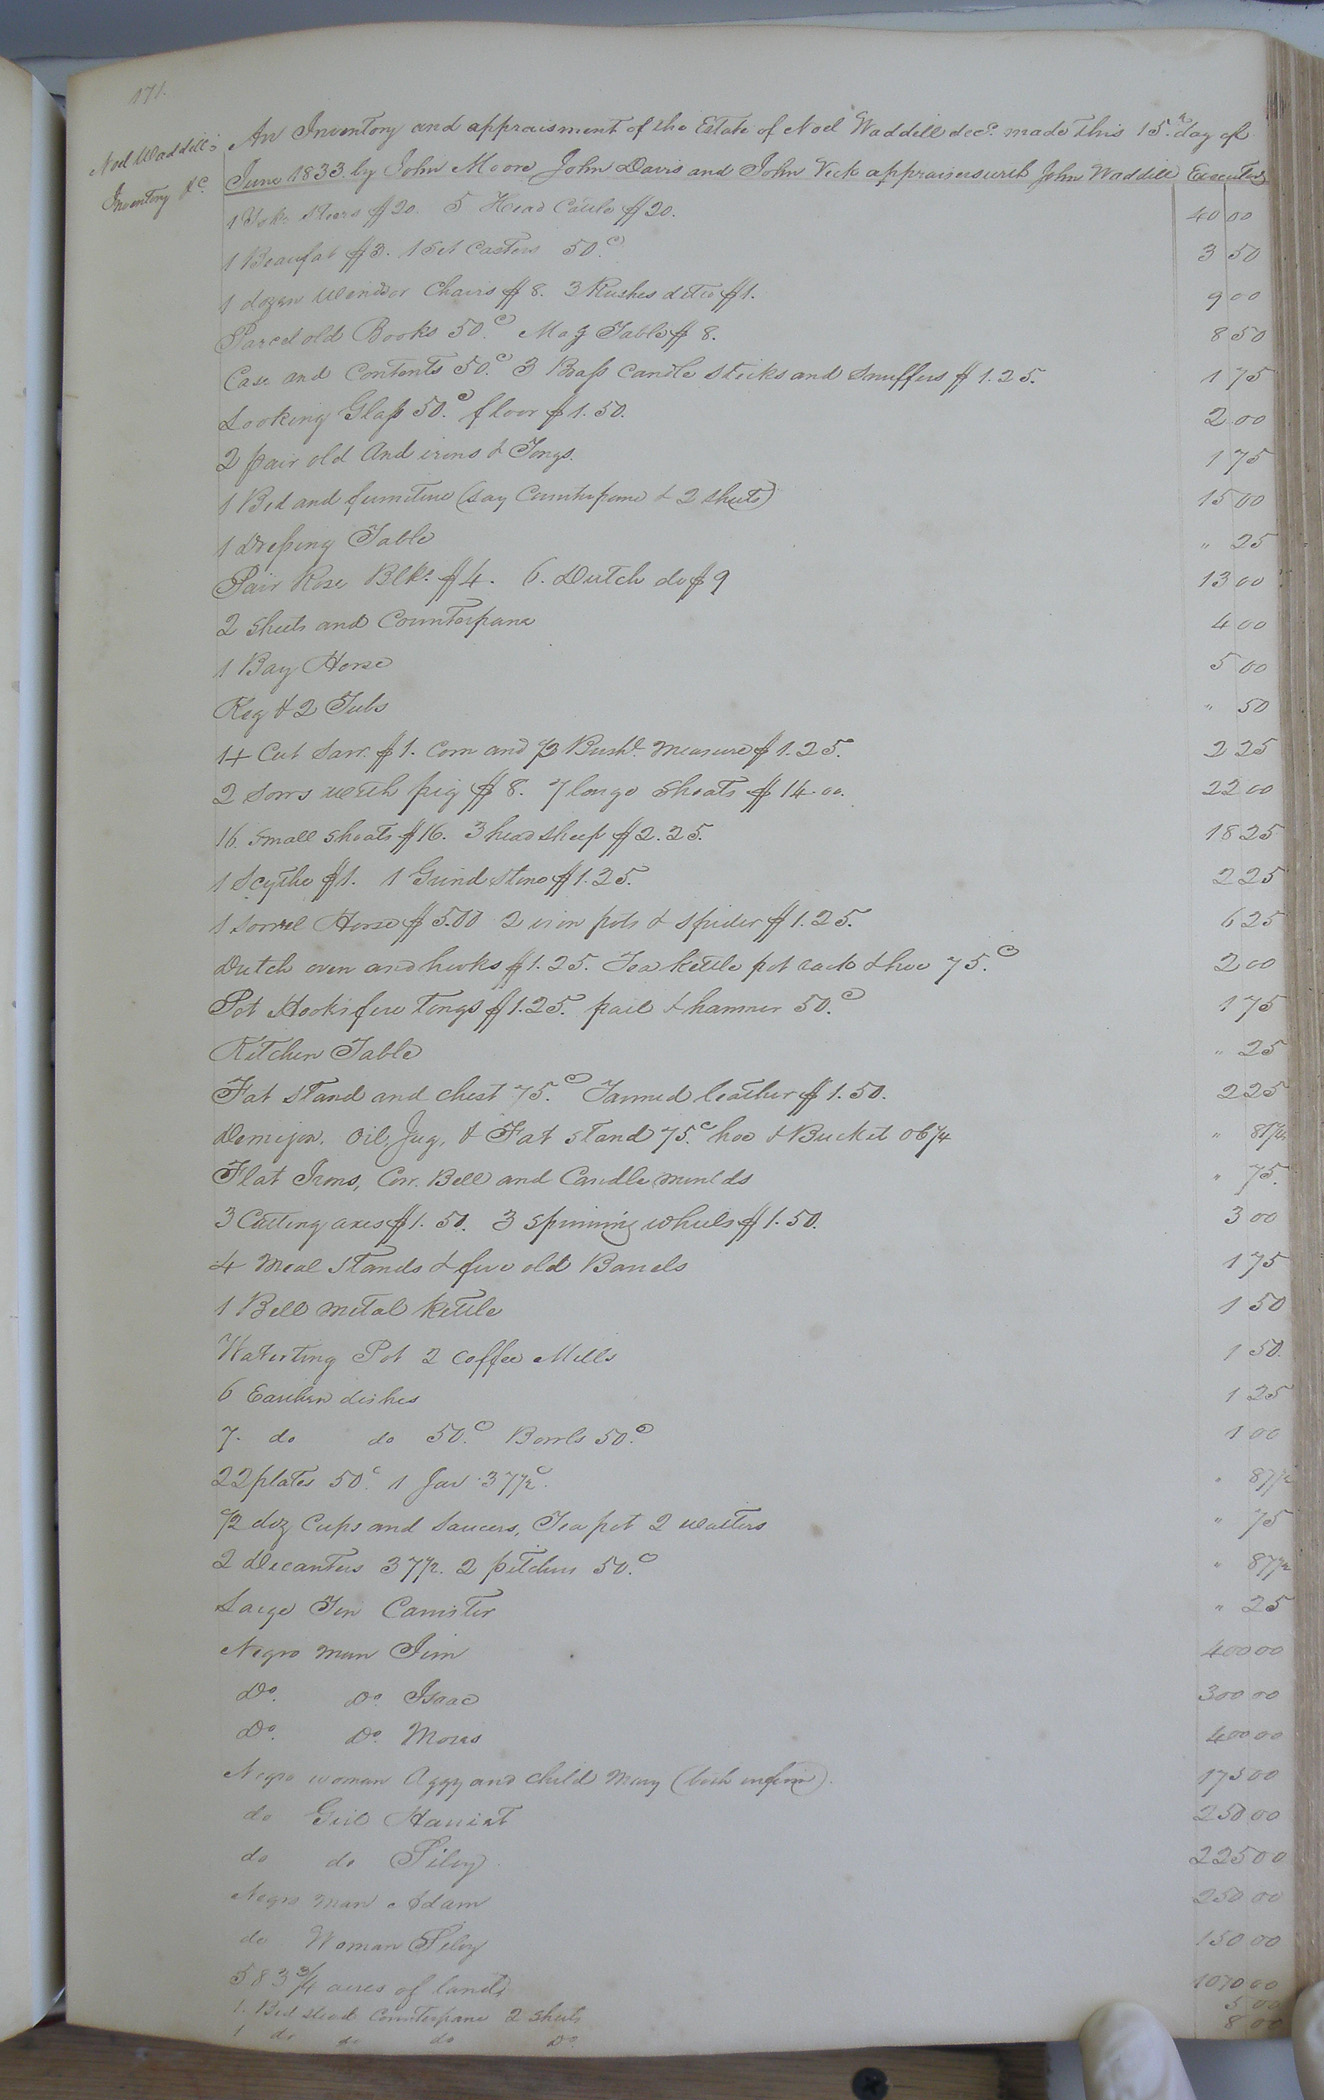 171.
Noel Waddill's
Inventory &c.
An Inventory and appraisment of the Estate of Noel Waddill decd. made this 15th day of
June 1833. by John Moore John Davis and John Vick appraisers with John Waddill Executor
1 Yoke Steers $20. 5 Head Cattle $20. 40 00
1 Beaufat $3. 1 Set Castors 50c. 3 50
1 dozen Windsor Chairs $8. 3 Rushes ditto $1. 9 00
Parcel old Books 50c. Mag Table $8. 8 50
Case and Contents 50.c 3 Brass Candle Sticks and Snuffers $1.25. 1 75
Looking Glass 50.c floor $1.50. 2 00
2 pair old And irons & Tongs. 1 75
1 Bed and furniture (say Counterpane & 2 Sheets) 15 00
1 Dressing Table " 25
Pair Rose Blkts $4. 6. Dutch do $9 13 00
2 Sheets and Counterpane 4 00
1 Bay Horse 5 00
Keg & 2 Tubs " 50
1 + Cut Saw. $1. Corn and 1/2 Bushl. Measure $1.25. 2 25
2 Sows with pig $8. 7 large Shoats $14.00. 22 00
16. Small Shoats $16. 3 head sheep $2.25. 18 25
1 Scythe $1. 1 Grind Stone $1.25. 2 25
1 Sorrel Horse $5.00 2 iron pots & Spider $1.25. 6 25
Dutch oven and hooks $1.25. Tea kettle pot rack & hoe 75.c 2 00
Pot Hooks fire Tongs $1.25. pail & hammer 50.c 1 75
Kitchen Table " 25
Fat Stand and chest 75.c Tanned leather $1.50. 2 25
Demijon, Oil, Jug, & Fat Stand 75.c hoe & Bucket 06 1/4 " 81 1/4
Flat Irons, Cow. Bell and Candle moulds " 75.
3 Cutting axes $1.50. 3 Spinning wheels $1.50. 3 00
4 Meal Stands & five old Barrels 1 75
1 Bell metal kettle 1 50
Waterting Pot 2 Coffee Mills 1 50.
6 Earthen dishes 1 25
7. do do 50.c Bowls 50.c 1 00
22 plates 50c. 1 Jar 37 1/2c. " 87 1/2
1/2 doz Cups and Saucers, Tea pot 2 waiters " 75
2 Decanters 37 1/2. 2 pitchers 50.c " 87 1/2
Large Tin Canister " 25
Negro man Jim 400 00
Do. Do. Isaac 300 00
Do. Do. Moses 400 00
Negro woman Aggy and child Mary (both infirm). 175 00
do Girl Harriet 250 00
do do Silvy 225 00
Negro man Adam 250 00
do Woman Silvy 150 00
583 3/4 acres of land 1070 00
1. Bed Stead Counterpane 2 sheets 5 00
1 do do do Do. 8 00